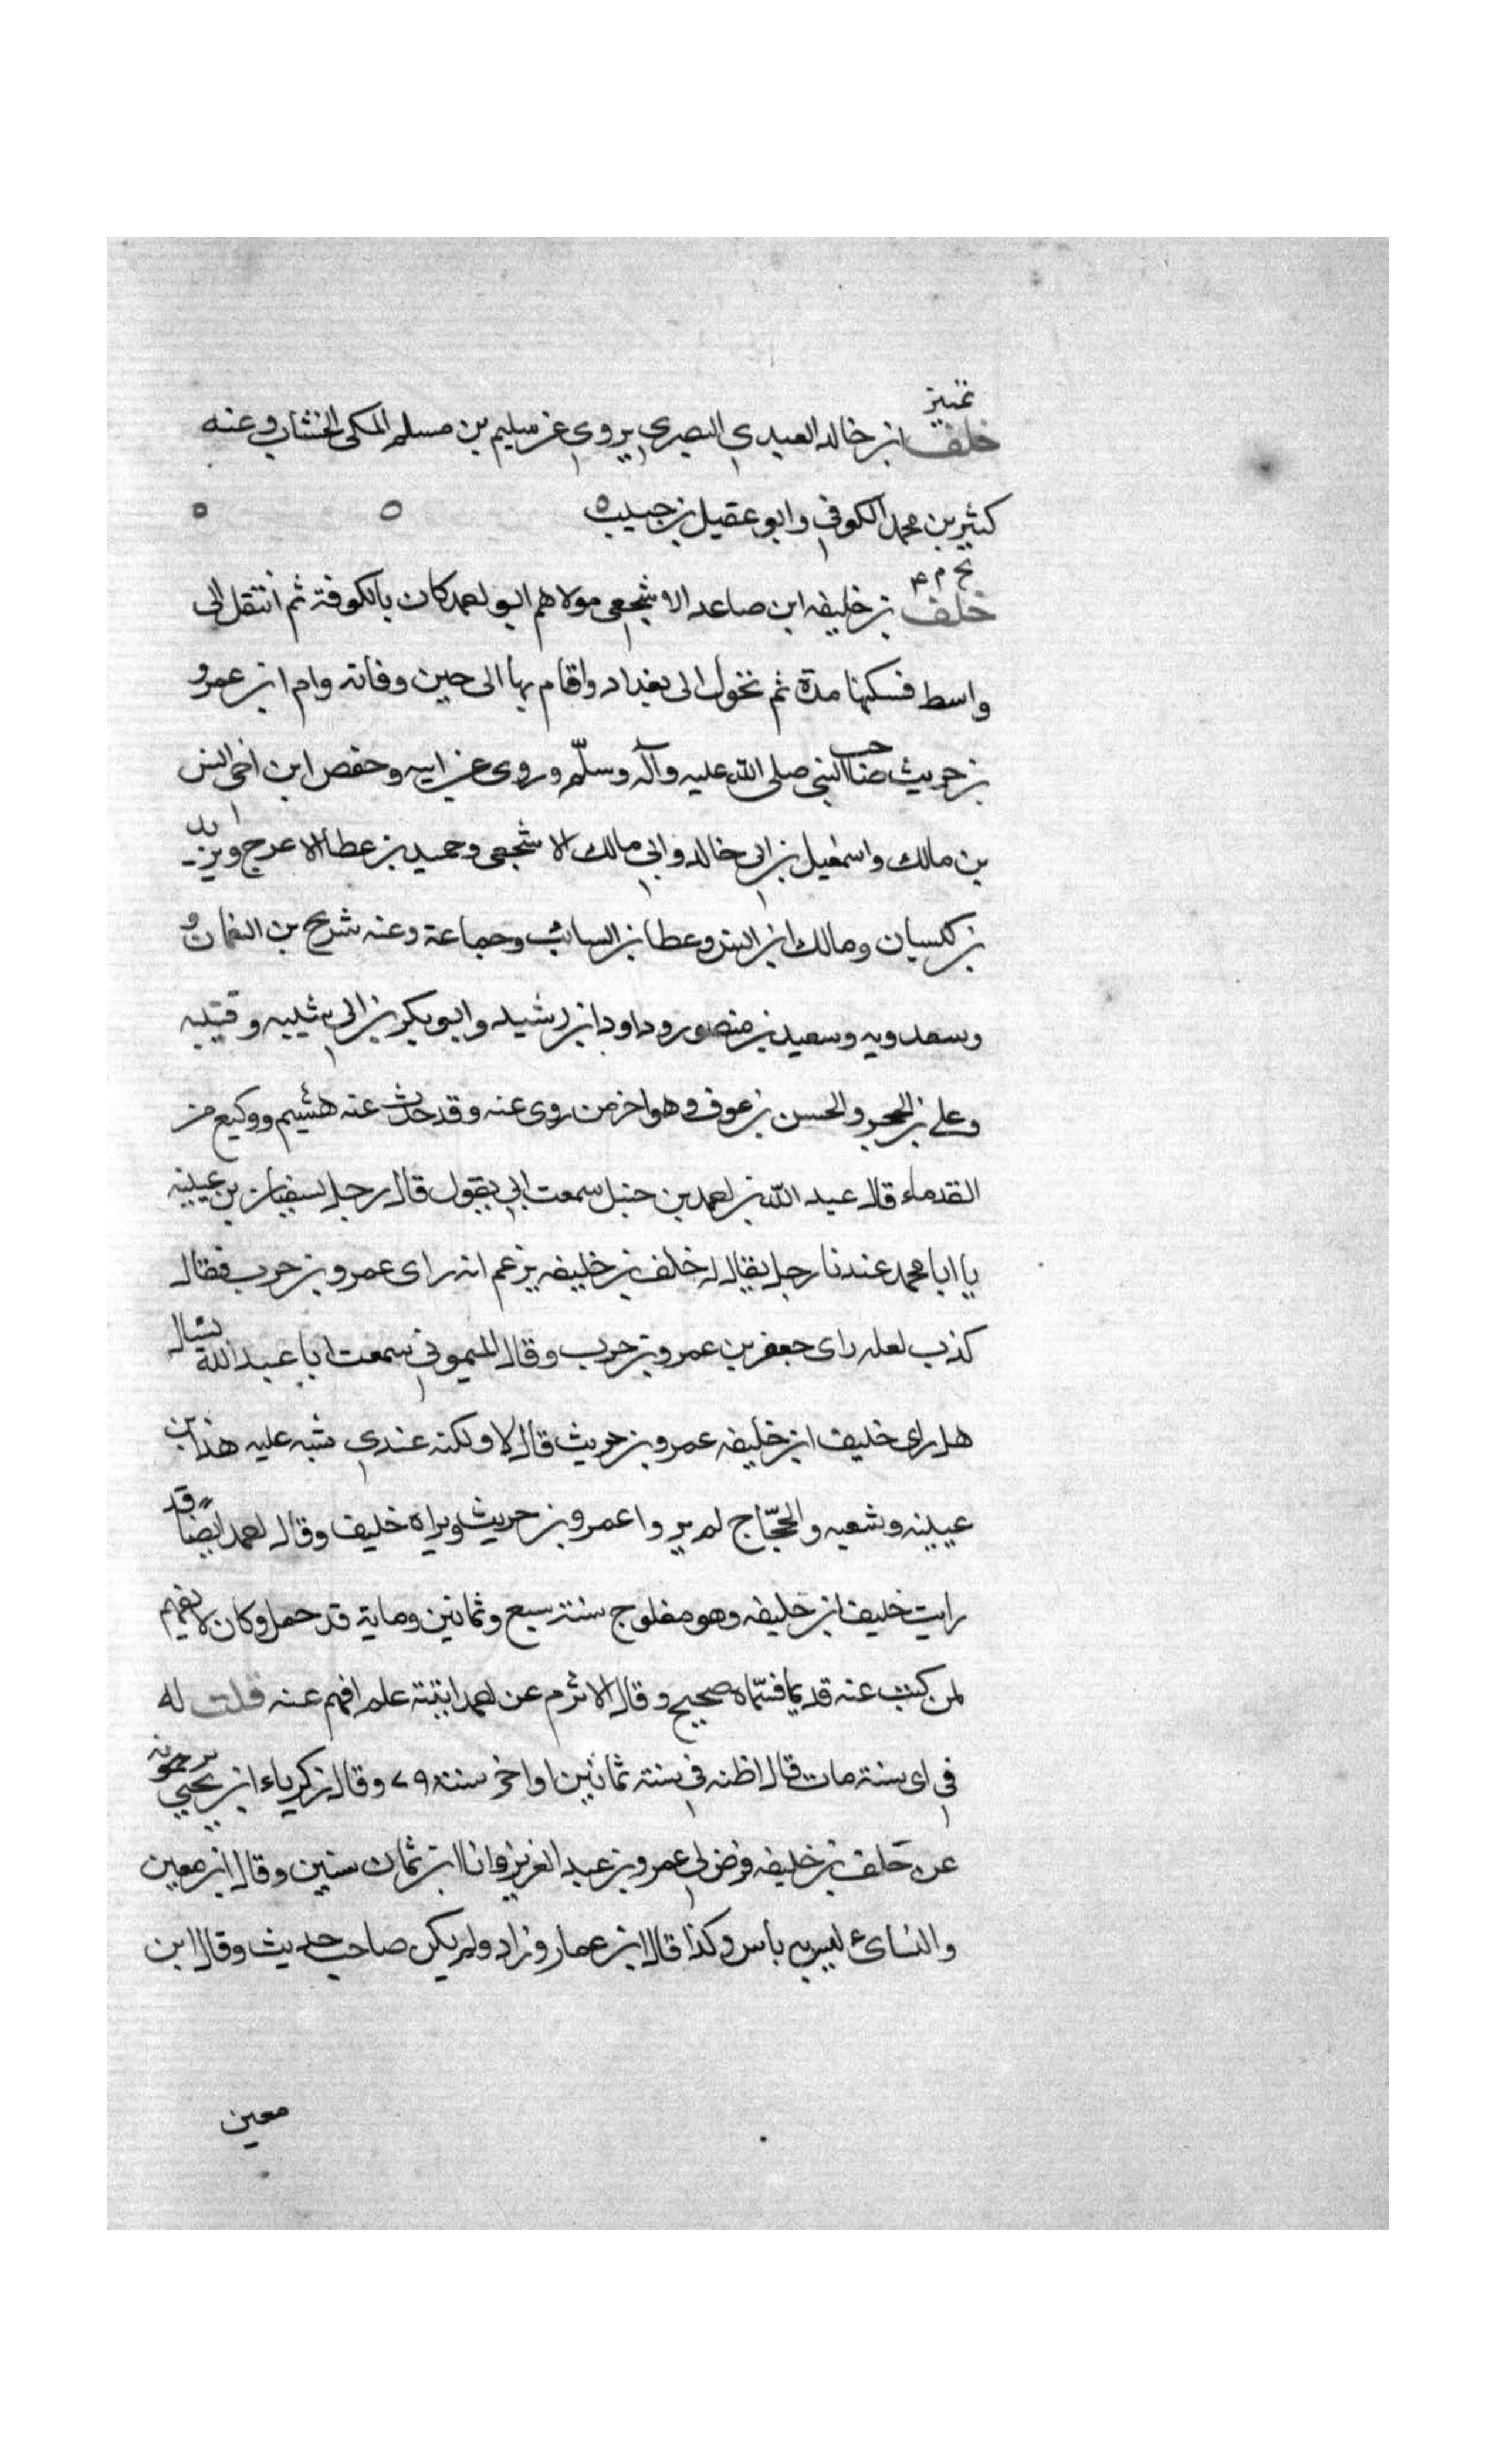 تمييز
خلف ابن خالد العبدي البصري يروي عن سليم بن مسلم المكي الخشاب وعنه
كثير بن محمد الكوفي وابو عقيل بن حبيب ه ه ه
بخ م ٤
خلف بن خليفه ابن صاعد الاشجعي مولاهم ابو احمد كان بالكوفة ثم انتقل الى
واسط فسكنها مدة ثم تحول الى بغداد واقام بها الى حين وفاته وام ابن عمرو
بن حريث صاحب النبي صلى الله عليه وآله وسلّم وروى عن ابيه وحفص ابن اخي انس
بن مالك واسمعيل بن ابي خالد وابي مالك الاشجعي وحميد بن عطا الاعرج ويزيد
بن كيسان ومالك ابن انس وعطا بن السائب وجماعة وعنه شريح بن النعمان و
وسعدويه وسعيد بن منصور وداود ابن رشيد وابو بكر بن ابي شيبه وقتيبه
وعلي بن الحجر والحسن بن عوف وهو اخر من روى عنه وقد حدث عنه هشيم ووكيع من
القدماء قال عبد الله بن احمد بن حنبل سمعت ابي يقول قال رجل لسفيان بن عيينه
يا ابا محمد عندنا رجل يقال له خلف بن خليفه يزعم انه راى عمرو بن حرب فقال
كذب لعله راى جعفر بن عمرو بن حرب وقال الميموني سمعت ابا عبد الله يسال
هل راى خليف ابن خليفه عمرو بن حريث قال لا ولكنه عندي شبه عليه هذا بن
عيينه وشعبه والحجّاج لم يروا عمرو بن حريث ويراه خليف وقال احمد ايضاً قد
رايت خليف ابن خليفه وهو مفلوج سنة سبع وثمانين وماية قد حمل وكان لا يفهم
لمن كتب عنه قديما فسماه صحيح وقال الاثرم عن احمد اتيته علم افهم عنه قلت له
في اى سنة مات قال اظنه في سنة ثمانين او اخر سنة ٧٩ وقال زكرياء ابن يحيى بن حمويه
عن خلف بن خليفه فرض لي عمرو بن عبد العزيز وانا ابن ثمان سنين وقال ابن معين
والنسائ ليس به بأس وكذا قال ابن عمار وزاد ولم يكن صاحب حديث وقال ابن
معين